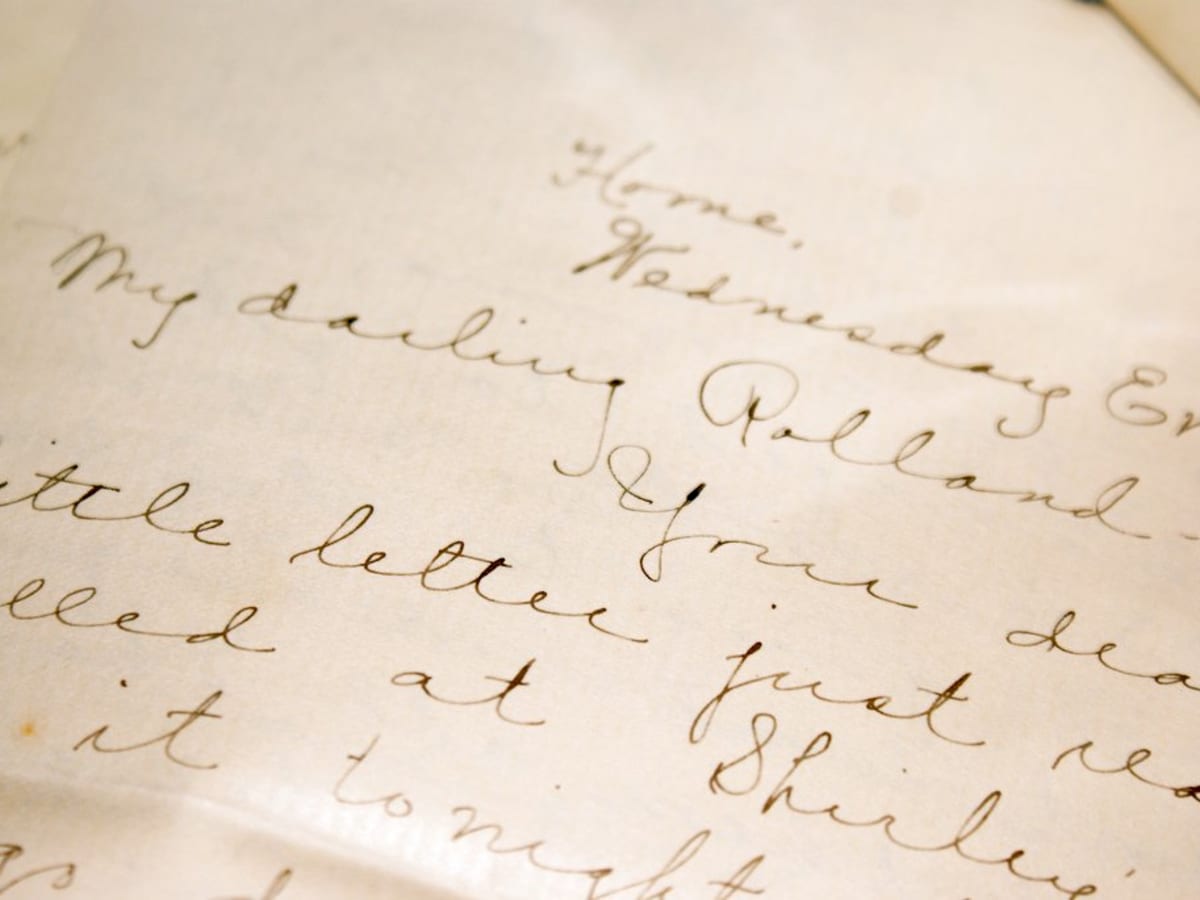 Home,
Wednesday Ev
My darling Rolland-
Your dea
ittle letter just rea
lled at Shirley'
it tonight